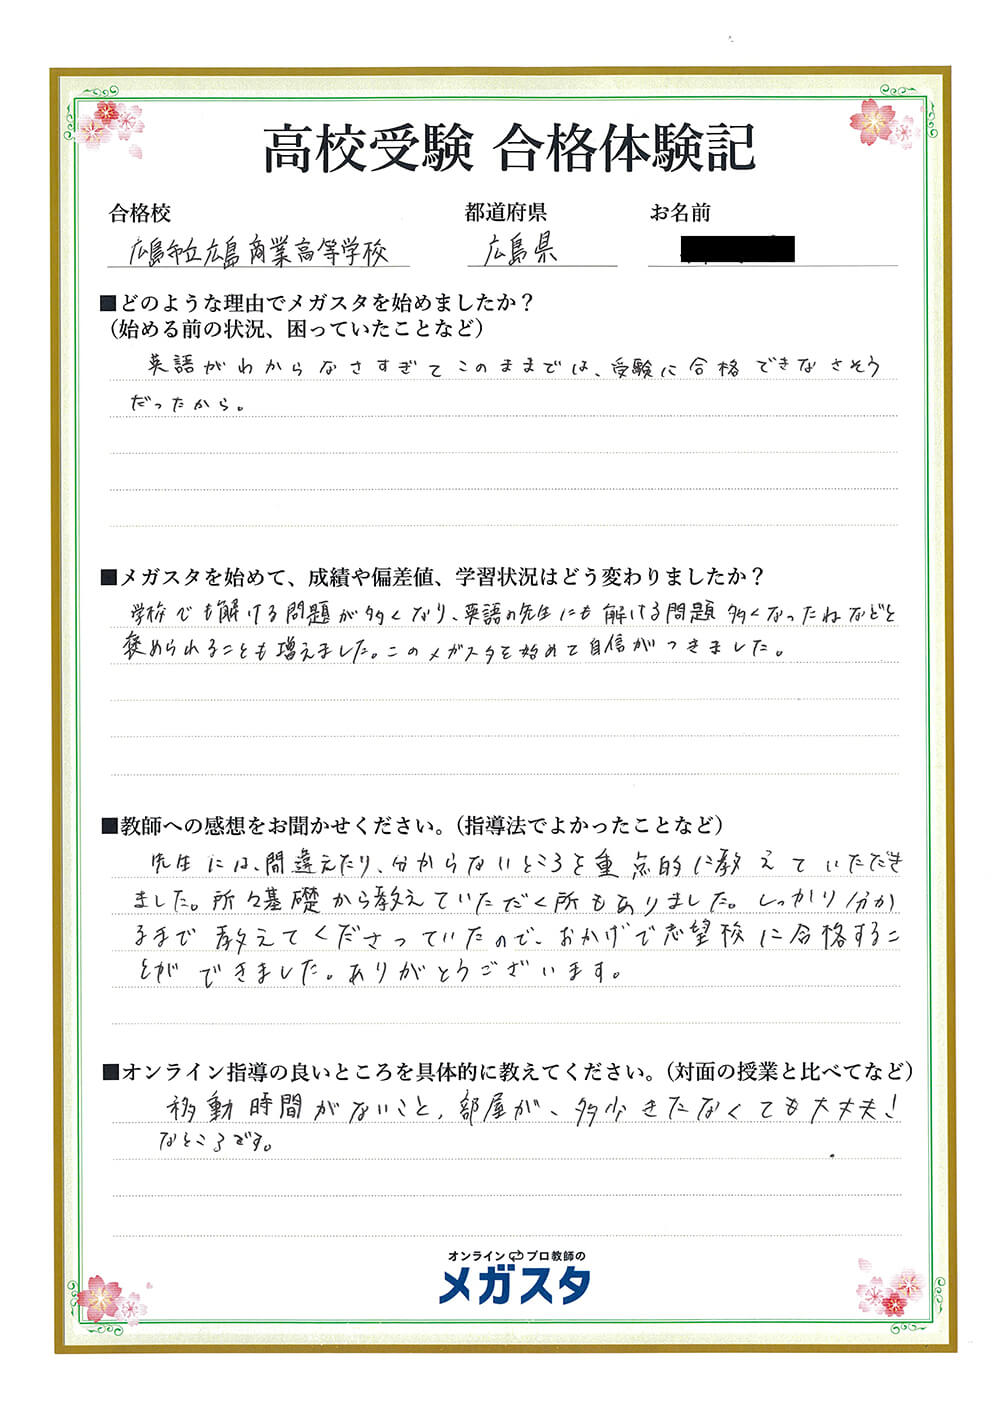 高校受験 合格体験記
合格校 都道府県 お名前
広島市立広島商業高等学校 広島県
■どのような理由でメガスタを始めましたか？
（始める前の状況、困っていたことなど）
英語がわからなさすぎてこのままでは、受験に合格できなさそう
だったから。
■メガスタを始めて、成績や偏差値、学習状況はどう変わりましたか？
学校でも解ける問題が多くなり、英語の先生にも解ける問題多くなったねなどと
褒められることも増えました。このメガスタを始めて自信がつきました。
■教師への感想をお聞かせください。（指導法でよかったことなど）
先生には、間違えたり、分からないところを重点的に教えていただき
ました。所々基礎から教えていただく所もありました。しっかり分か
るまで教えてくださっていたので、おかげで志望校に合格するこ
とができました。ありがとうございます。
■オンライン指導の良いところを具体的に教えてください。（対面の授業と比べてなど）
移動時間がないこと，部屋が、多少きたなくても大丈夫！
なところです。
オンラインプロ教師の
メガスタ